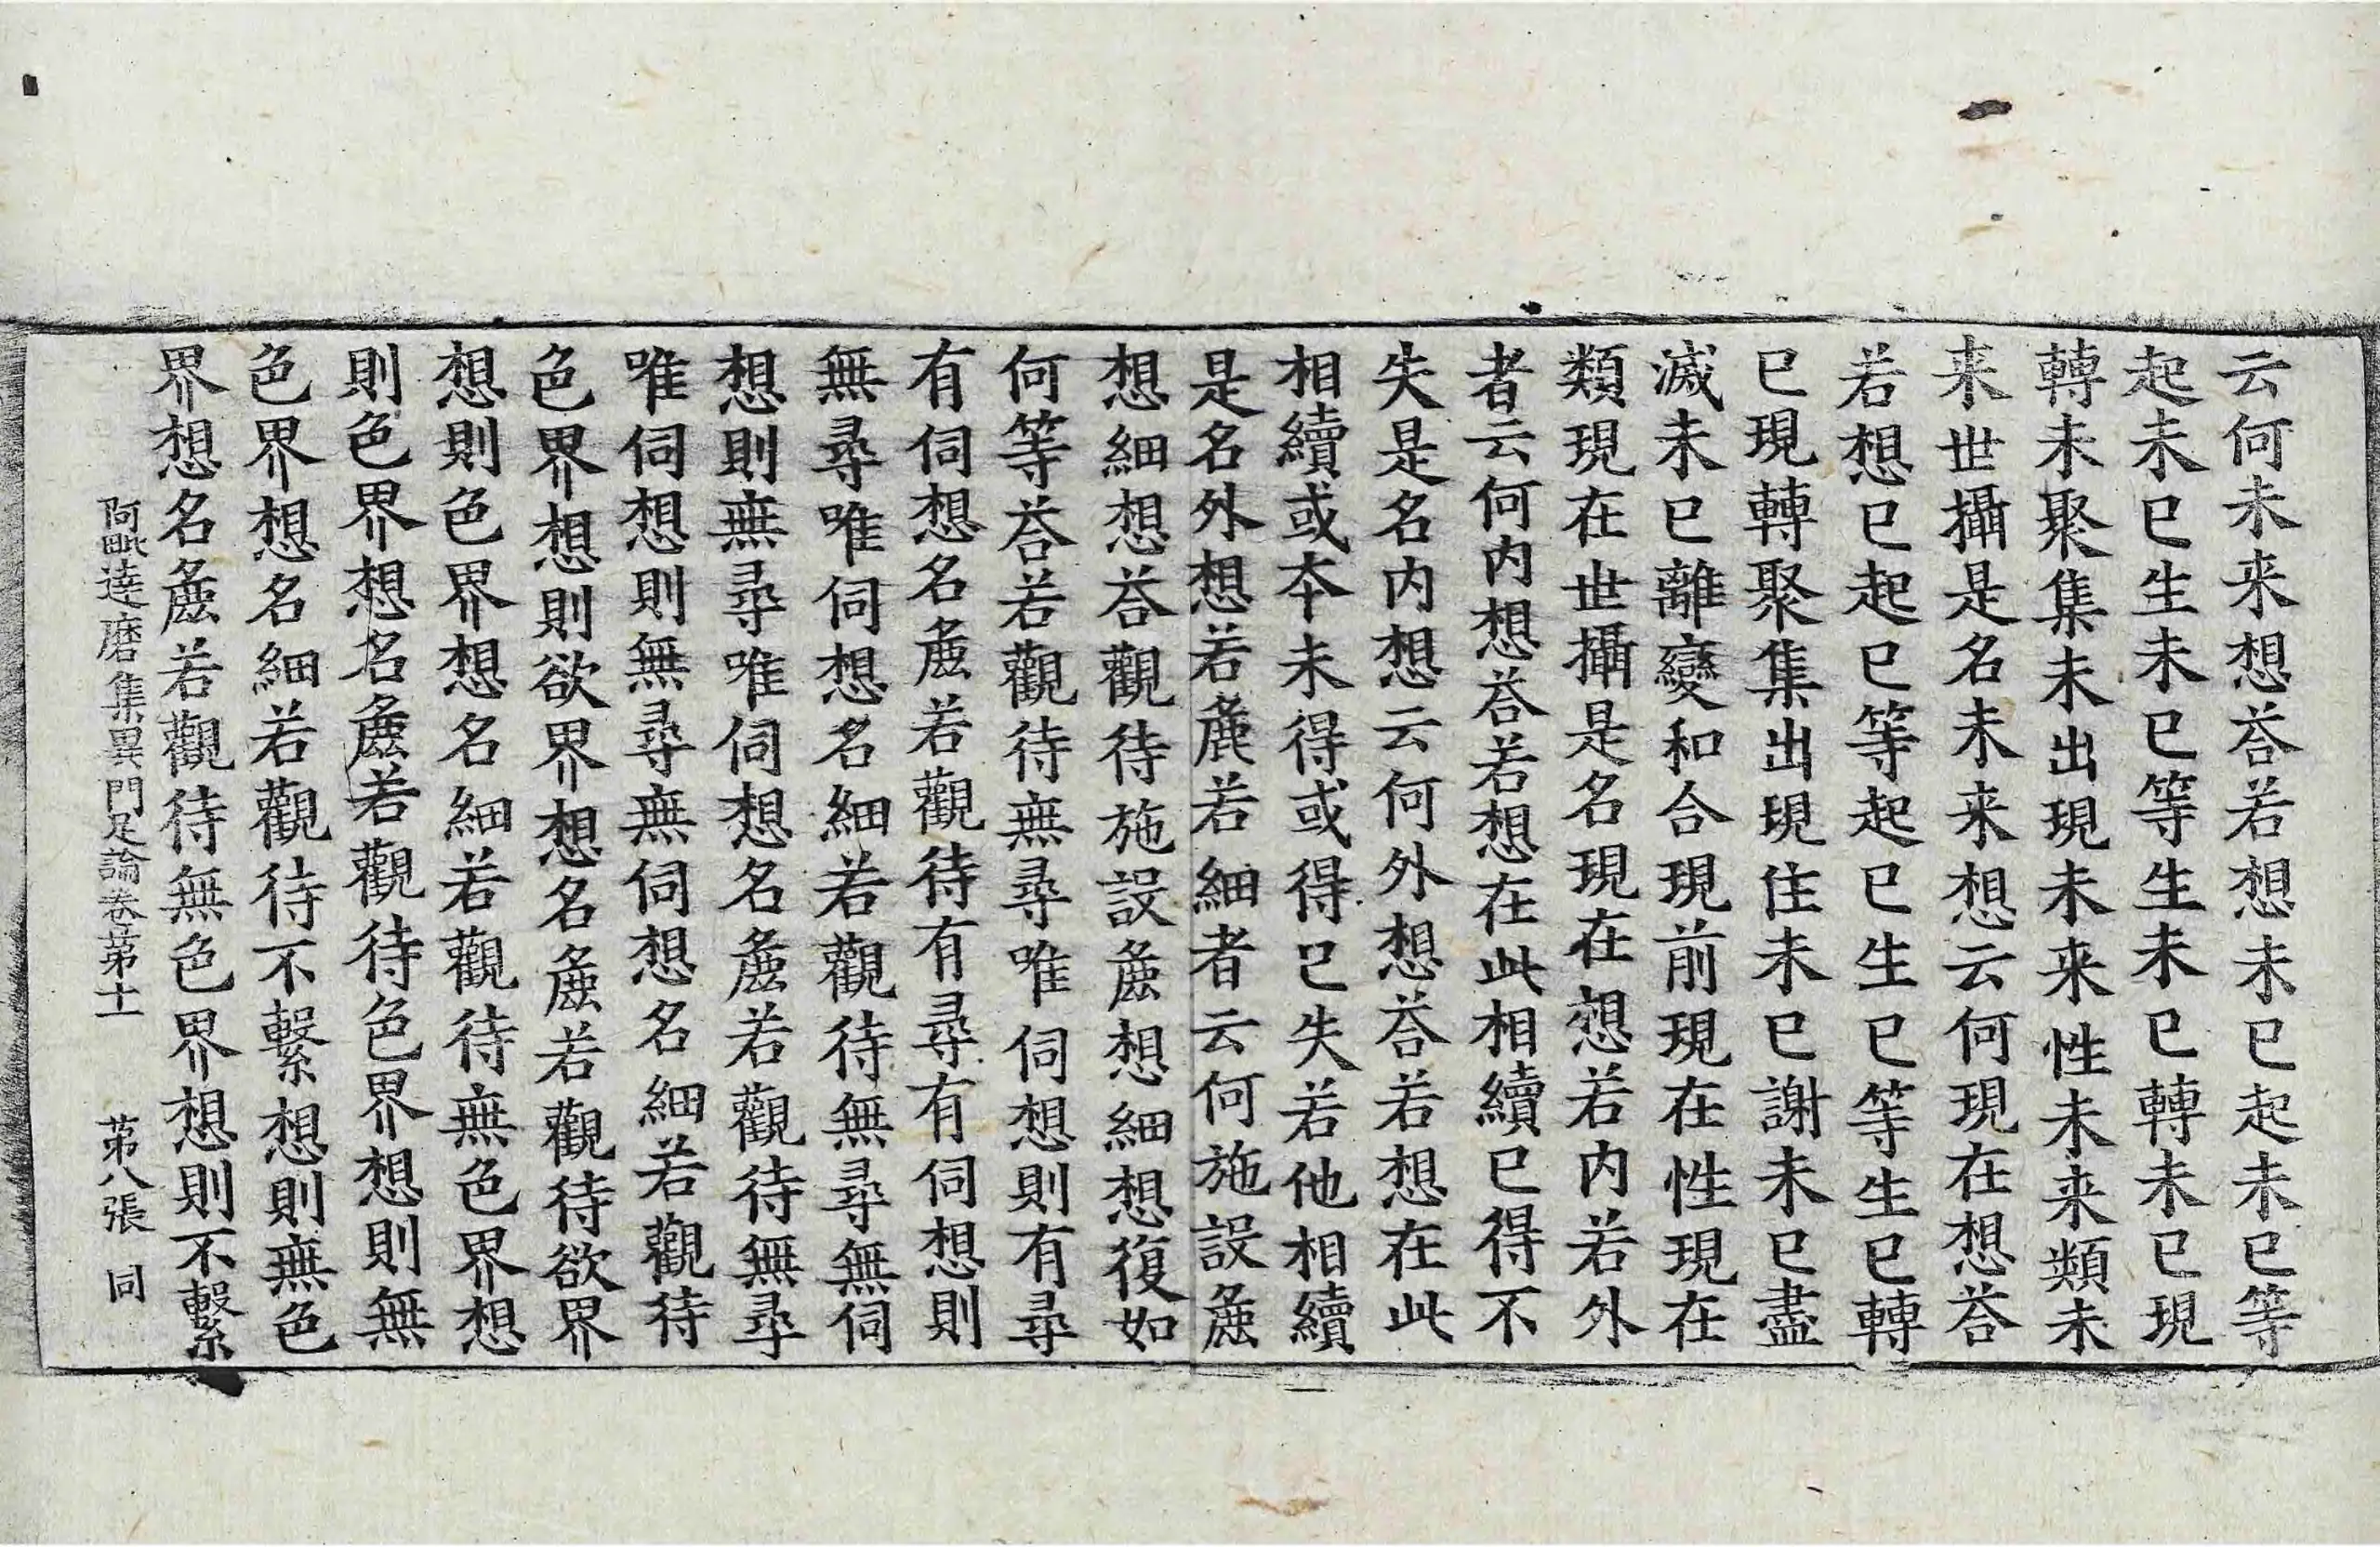 云何未来想荅若想未已起未已等
起未已生未已等生未已轉未已現
轉未聚集未出現未来性未来類未
来世攝是名未来想云何現在想荅
若想已已起已等起已生已等生已轉
已現轉聚集出現住未已謝未已盡
滅未已離變和合現前現在性現在
類現在世攝是名現在想若内若外
者云何内想荅若想在此相續已得不
失是名内想云何外想荅若想在此
相續或本未得或得已失若他相續
是名外想若麁若細者云何施設麁
想細想荅觀待施設麁想細想復如
何等荅若觀待無尋唯伺想則有尋
有伺想名麁若觀待有尋有伺想則
無尋唯伺想名細若觀待無尋無伺
想則無尋唯伺想名麁若觀待無尋
唯伺想則無尋無伺想名細若觀待
色界想則欲界想名麁若觀待欲界
想則色界想名細若觀待無色界想
則色界想名麁若觀待色界想則無
色界想名細若觀待不繫想則無色
界想名麁若觀待無色界想則不繫
阿毗達磨集異門足論卷苐十一 苐八張 同